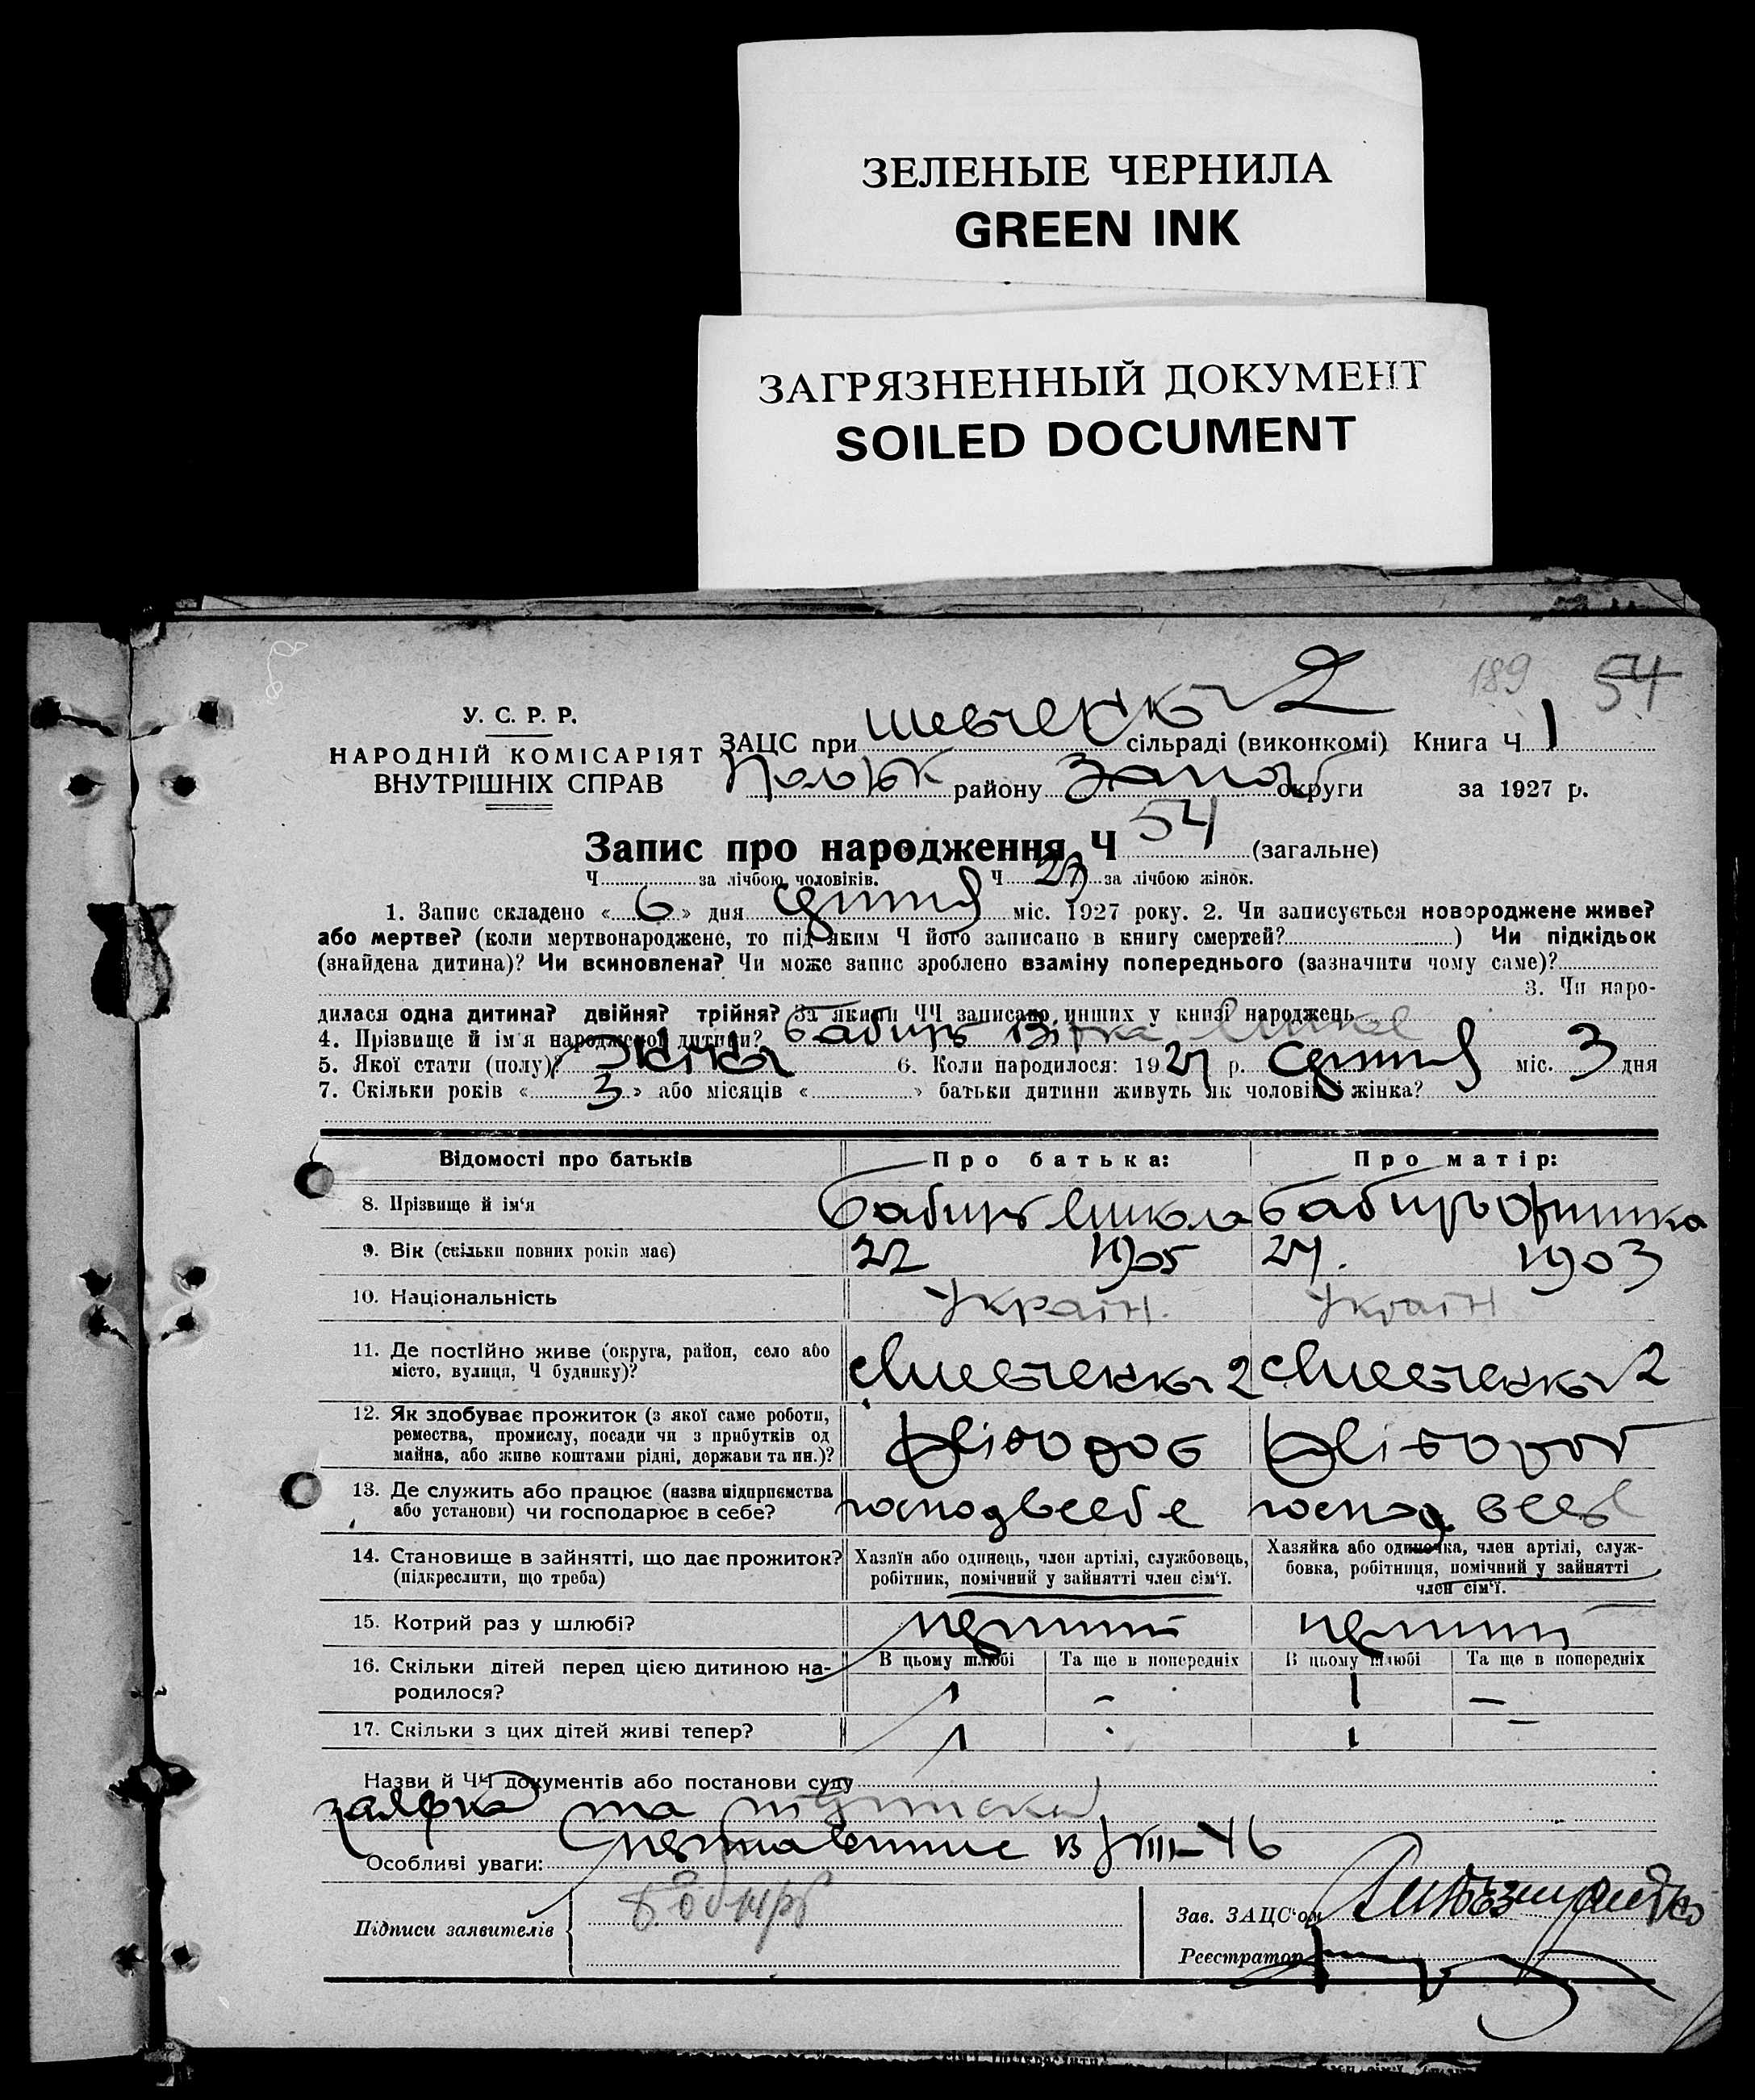 ЗЕЛЕНЫЕ ЧЕРНИЛА
GREEN INK
ЗАГРЯЗНЕННЫЙ ДОКУМЕНТ
SOILED DOCUMENT
189 54
У. С. Р. Р.
НАРОДНІЙ КОМІСАРІЯТ
ВНУТРІШНІХ СПРАВ
ЗАЦС при 2 сільраді (виконкомі) Книга Ч 1
району Запор округи за 1927 р.
Запис про народження Ч 54 (загальне)
Ч за лічбою чоловіків. Ч 27 за лічбою жінок.
1. Запис складено « 6 » дня міс. 1927 року. 2. Чи записується новороджене живе?
або мертве? (коли мертвонароджене, то під яким Ч його записано в книгу смертей? ) Чи підкідьок
(знайдена дитина)? Чи всиновлена? Чи може запис зроблено взаміну попереднього (зазначити чому саме)?
3. Чи наро-
дилася одна дитина? двійня? трійня? За якими ЧЧ записано инших у книзі народжень
4. Прізвище й ім'я народженої дитини? Бабирь
5. Якої стати (полу)? жінка 6. Коли народилося: 1927 р. міс. 3 дня
7. Скільки років « 3 » або місяців « » батьки дитини живуть як чоловік і жінка?
Відомості про батьків Про батька: Про матір:
8. Прізвище й ім'я Бабирь Микола Бабирь
9. Вік (скільки повних років має) 22 1905 24. 1903
10. Національність Україн. Україн
11. Де постійно живе (округа, район, село або
місто, вулиця, Ч будинку)? 2 2
12. Як здобуває прожиток (з якої саме роботи,
ремества, промислу, посади чи з прибутків од
майна, або живе коштами рідні, держави та ин.)? Хлібороб Хлібороб
13. Де служить або працює (назва підприємства
або установи) чи господарює в себе? господ в себе господ в себе
14. Становище в зайнятті, що дає прожиток?
(підкреслити, що треба)
Хазяїн або одинець, член артілі, службовець,
робітник, помічний у зайнятті член сім'ї.
Хазяйка або одиночка, член артілі, служ-
бовка, робітниця, помічний у зайнятті
член сім'ї.
15. Котрий раз у шлюбі? перший перший
16. Скільки дітей перед цією дитиною на-
родилося?
В цьому шлюбі Та ще в попередніх В цьому шлюбі Та ще в попередніх
1 - 1 -
17. Скільки з цих дітей живі тепер? 1 1 -
Назви й ЧЧ документів або постанови суду
заявка та
Особливі уваги: VIII-46
Підписи заявителів Бабирь
Зав. ЗАЦС'ом
Реєстратор